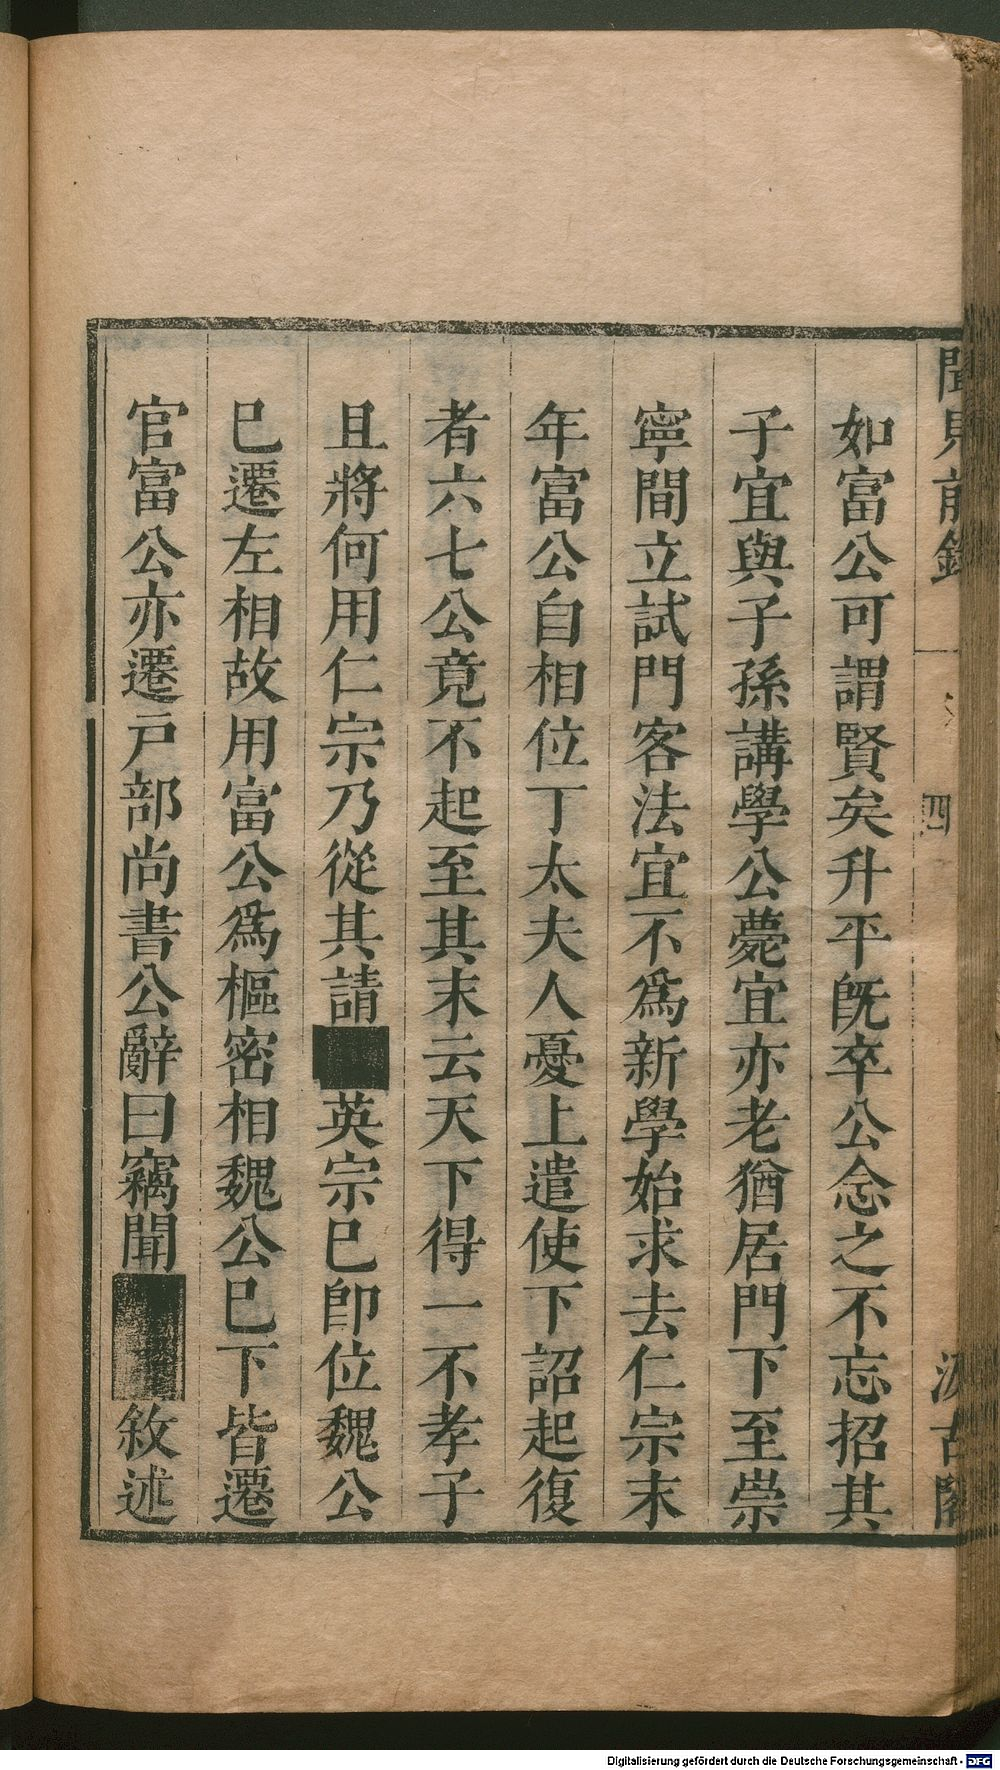 聞見前錄
四
汲古閣
如富公可謂賢矣升平旣卒公念之不忘招其
子宜與子孫講學公薨宜亦老猶居門下至崇
寧間立試門客法宜不爲新學始求去仁宗末
年富公自相位丁太夫人憂上遣使下詔起復
者六七公竟不起至其末云天下得一不孝子
且將何用仁宗乃從其請英宗已卽位魏公
已遷左相故用富公爲樞密相魏公已下皆遷
官富公亦遷戶部尚書公辭曰竊聞敘述
Digitalisierung gefördert durch die Deutsche Forschungsgemeinschaft - DFG